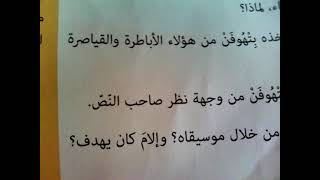 ـاء، لماذا؟
ـخذه بِتْهُوفَنْ من هؤلاء الأباطرة والقياصرة
ـتْهُوفَنْ من وجهة نظر صاحب النّصّ.
من خلال موسيقاه؟ وإلامَ كان يهدف؟